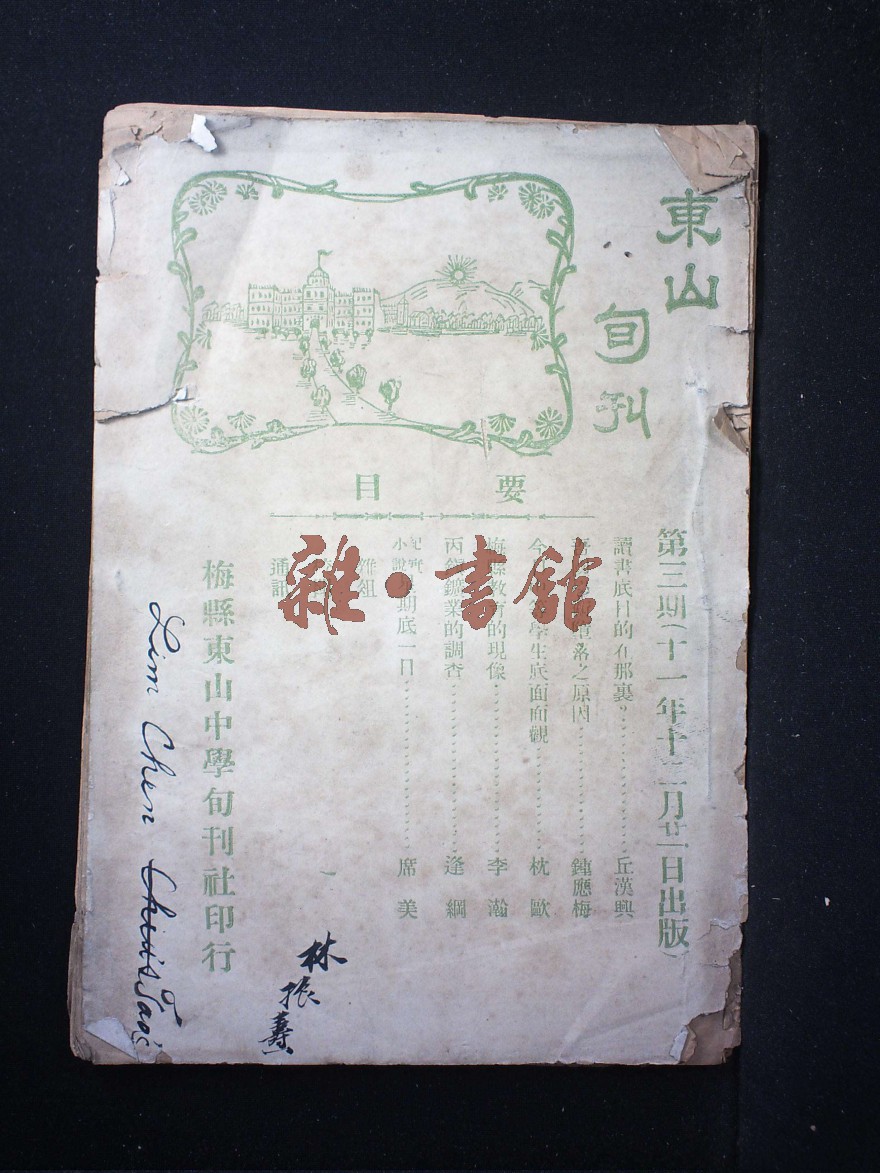 東山
旬刊
第三期(十一年十二月廿一日出版)
要目
讀書底目的在那裏?……丘漢興
墮落之原因……鍾應梅
今 學生底面面觀……枕歐
梅縣教 的現像……李瀚
丙 鑛業的調查……逢綱
紀實小說 期底一日……席美
雜俎
通訊
梅縣東山中學旬刊社印行
林振壽
Lim Chen
雜·書館